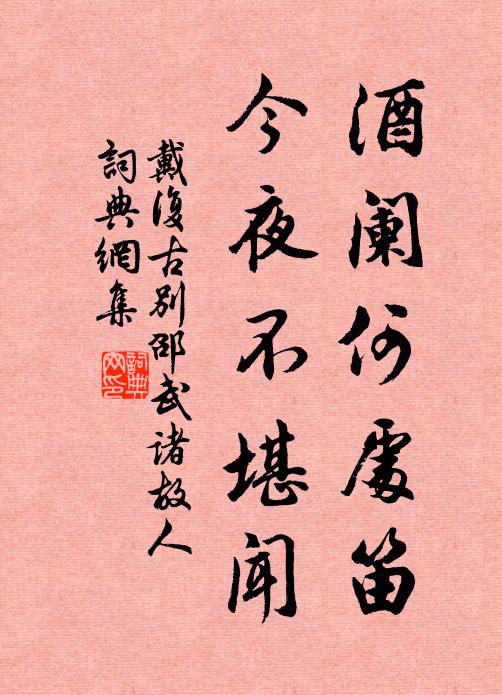 酒阑何處笛
今夜不堪聞
戴復古别邵武诸故人
詞典網集
詞典
网印